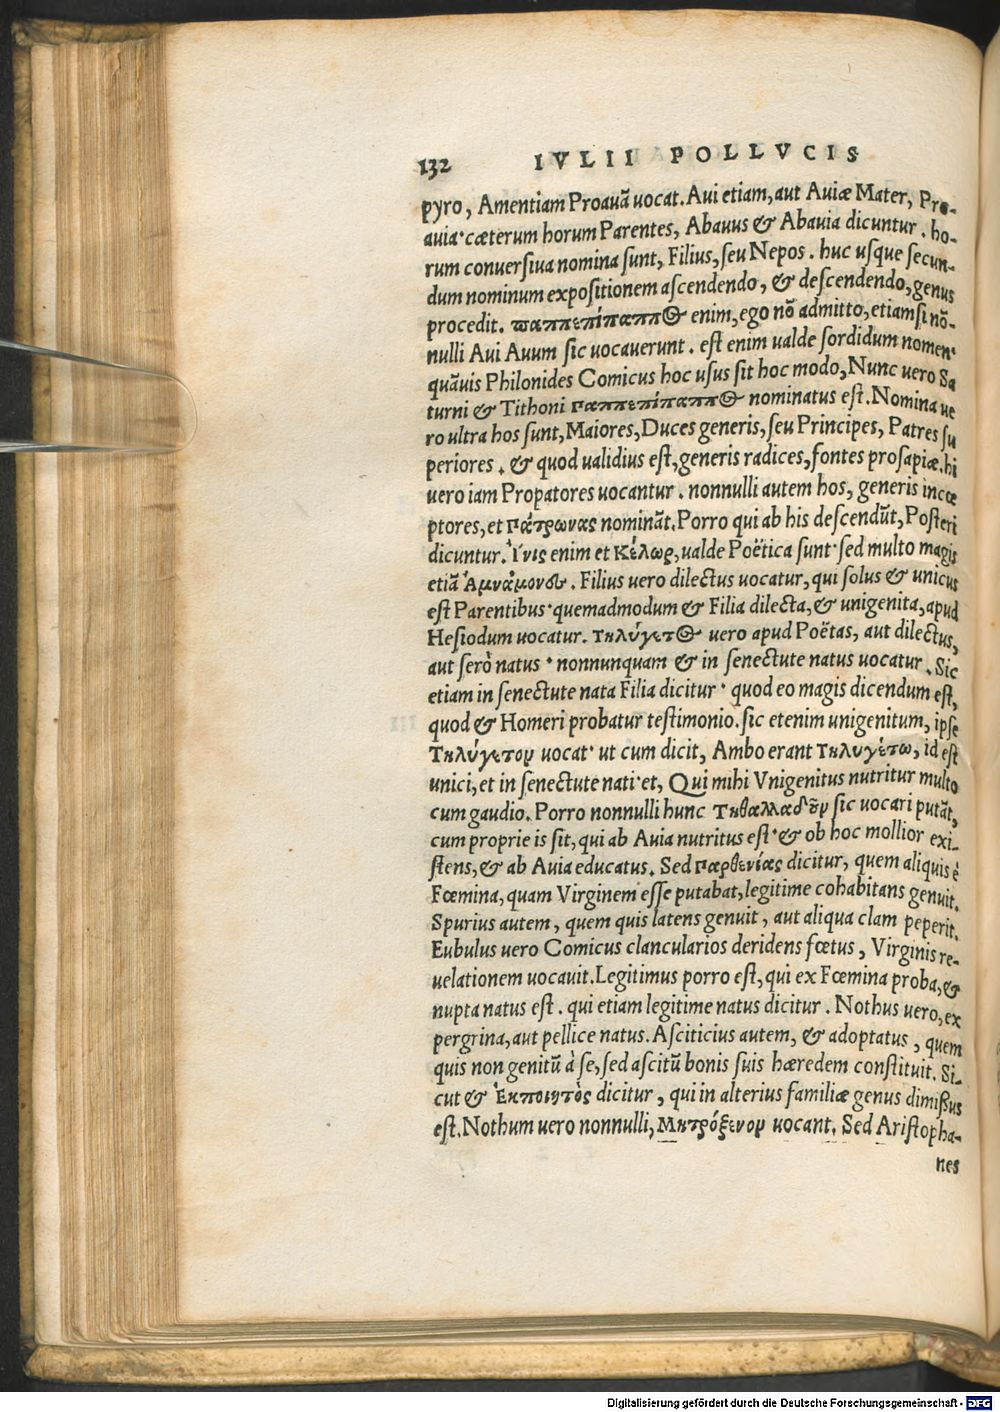 132 IVLII POLLVCIS
pyro, Amentiam Proauā uocat. Aui etiam, aut Auiæ Mater, Pro-
auia· cæterum horum Parentes, Abauus & Abauia dicuntur. ho-
rum conuersiua nomina sunt, Filius, seu Nepos. huc usque secun-
dum nominum expositionem ascendendo, & descendendo, genus
procedit. παππεπίπαππος enim, ego nō admitto, etiamsi nō-
nulli Aui Auum sic uocauerunt. est enim ualde sordidum nomen·
quāuis Philonides Comicus hoc usus sit hoc modo, Nunc uero Sa
turni & Tithoni παππεπίπαππος nominatus est. Nomina ue
ro ultra hos sunt, Maiores, Duces generis, seu Principes, Patres su
periores. & quod ualidius est, generis radices, fontes prosapiæ. hi
uero iam Propatores uocantur. nonnulli autem hos, generis incœ
ptores, et Πάτρωνας nominãt. Porro qui ab his descendũt, Posteri
dicuntur. Ἴνις enim et Κέλωρ, ualde Poëtica sunt· sed multo magis
etiã Ἀμνάμονες. Filius uero dilectus uocatur, qui solus & unicus
est Parentibus· quemadmodum & Filia dilecta, & unigenita, apud
Hesiodum uocatur. Τηλύγετος uero apud Poëtas, aut dilectus,
aut serò natus· nonnunquam & in senectute natus uocatur. Sic
etiam in senectute nata Filia dicitur· quod eo magis dicendum est,
quod & Homeri probatur testimonio. sic etenim unigenitum, ipse
Τηλύγετον uocat· ut cum dicit, Ambo erant Τηλυγέτω, id est
unici, et in senectute nati· et, Qui mihi Vnigenitus nutritur multo
cum gaudio. Porro nonnulli hunc Τηθαλλαδοῦν sic uocari putãt,
cum proprie is sit, qui ab Auia nutritus est· & ob hoc mollior exi-
stens, & ab Auia educatus. Sed Παρθενίας dicitur, quem aliquis è
Fœmina, quam Virginem esse putabat, legitime cohabitans genuit.
Spurius autem, quem quis latens genuit, aut aliqua clam peperit.
Eubulus uero Comicus clancularios deridens fœtus, Virginis re-
uelationem uocauit. Legitimus porro est, qui ex Fœmina proba, &
nupta natus est. qui etiam legitime natus dicitur. Nothus uero, ex
pergrina, aut pellice natus. Asciticius autem, & adoptatus, quem
quis non genitũ à se, sed ascitũ bonis suis hæredem constituit. Si-
cut & Ἐκποιητὸς dicitur, qui in alterius familiæ genus dimissus
est. Nothum uero nonnulli, Μητρόξενον uocant. Sed Aristopha-
nes
Digitalisierung gefördert durch die Deutsche Forschungsgemeinschaft - DFG